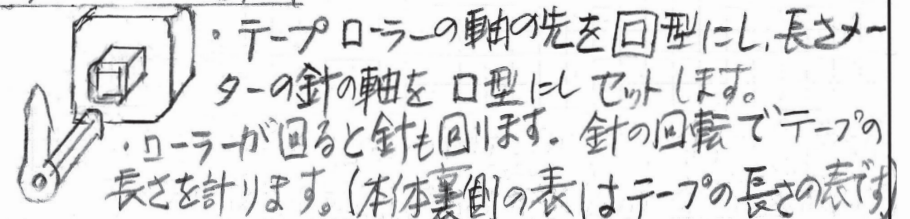 ・テープローラーの軸の先を回型にし、長さメー
ターの針の軸を口型にしセットします。
・ローラーが回ると針も回ります。針の回転でテープの
長さを計ります。(本体裏側の表はテープの長さの表です)